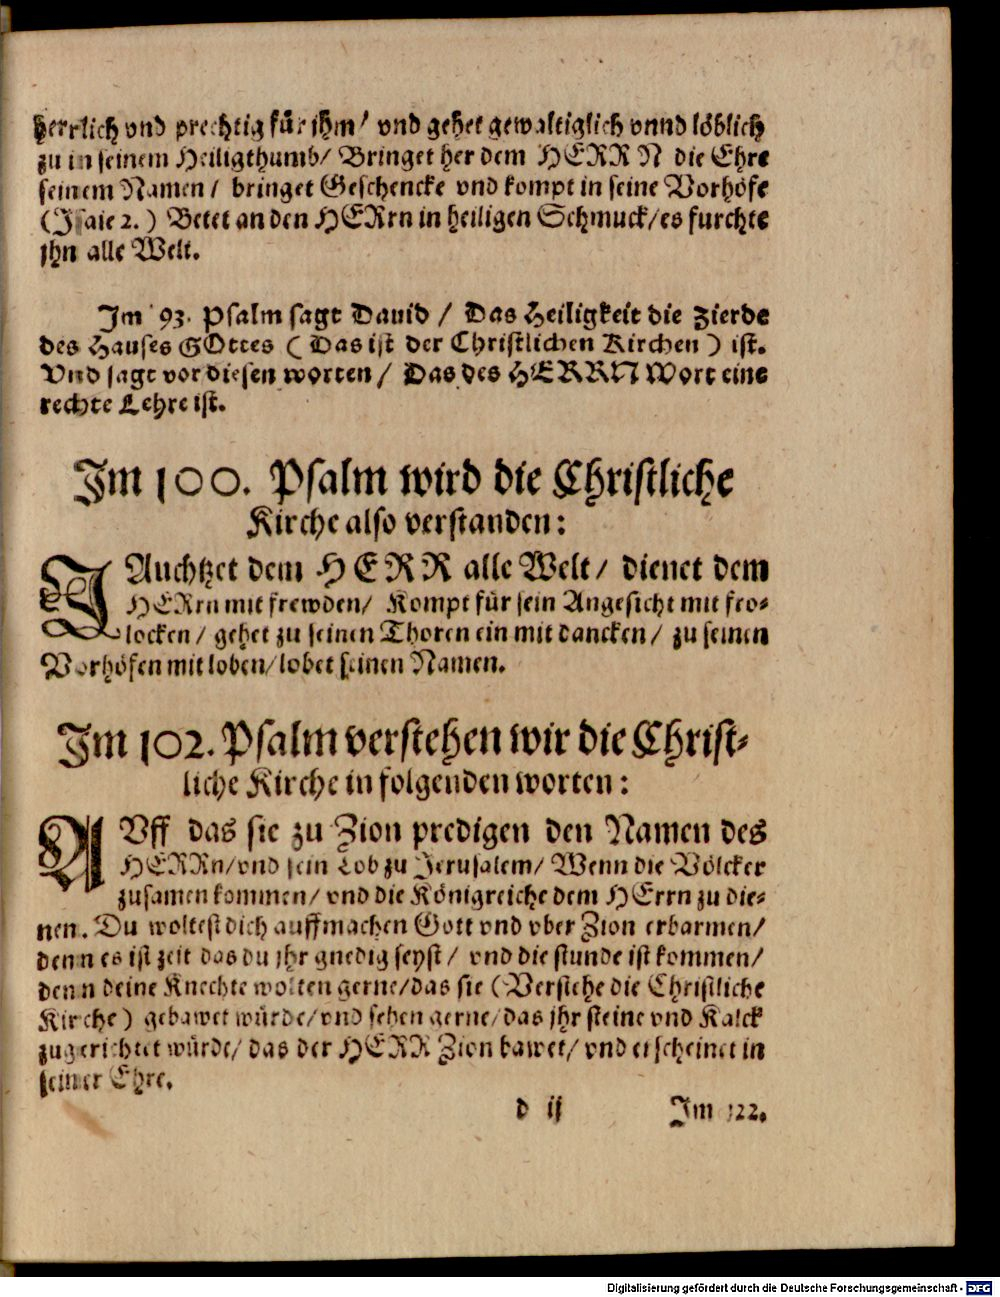 herrlich vnd prechtig für jhm/ vnd gehet gewaltiglich vnnd löblich
zu in seinem Heiligthumb/ Bringet her dem HERRN die Ehre
seinem Namen/ bringet Geschencke vnd kompt in seine Vorhöfe
(Isaie 2.) Betet an den HERrn in heiligen Schmuck/ es furchte
jhn alle Welt.
Im 93. Psalm sagt Dauid/ Das Heiligkeit die Zierde
des Hauses GOttes (Das ist der Christlichen Kirchen) ist.
Vnd sagt vor diesen worten/ Das des HERRN Wort eine
rechte Lehre ist.
Im 100. Psalm wird die Christliche
Kirche also verstanden:
IAuchtzet dem HERR alle Welt/ dienet dem
HERrn mit frewden/ Kompt für sein Angesicht mit fro-
locken/ gehet zu seinen Thoren ein mit dancken/ zu seinen
Vorhöfen mit loben/ lobet seinen Namen.
Im 102. Psalm verstehen wir die Christ-
liche Kirche in folgenden worten:
AVff das sie zu Zion predigen den Namen des
HERRn/ vnd sein Lob zu Jerusalem/ Wenn die Völcker
zusamen kommen/ vnd die Königreiche dem HErrn zu die-
nen. Du woltest dich auffmachen Gott vnd vber Zion erbarmen/
denn es ist zeit das du jhr gnedig seyst/ vnd die stunde ist kommen/
denn deine Knechte wolten gerne/ das sie (Verstehe die Christliche
Kirche) gebawet würde/ vnd sehen gerne/ das jhr steine vnd Kalck
zugerichtet würde/ das der HERR Zion bawet/ vnd erscheinet in
seiner Ehre.
d ij Im 122.
Digitalisierung gefördert durch die Deutsche Forschungsgemeinschaft - DFG